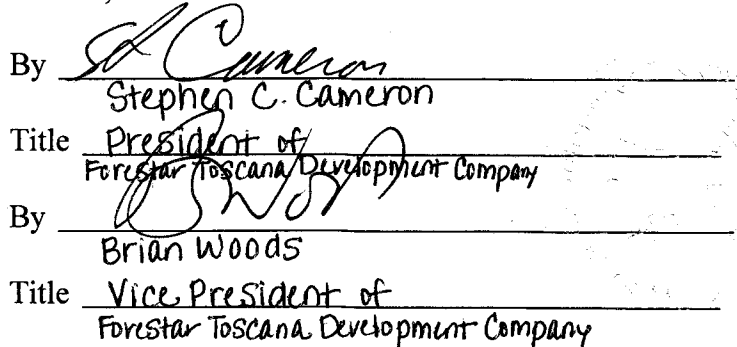 By Sd Cameron
Stephen C. Cameron
Title President of
Forestar Toscana Development Company
By
Brian Woods
Title Vice President of
Forestar Toscana Development Company